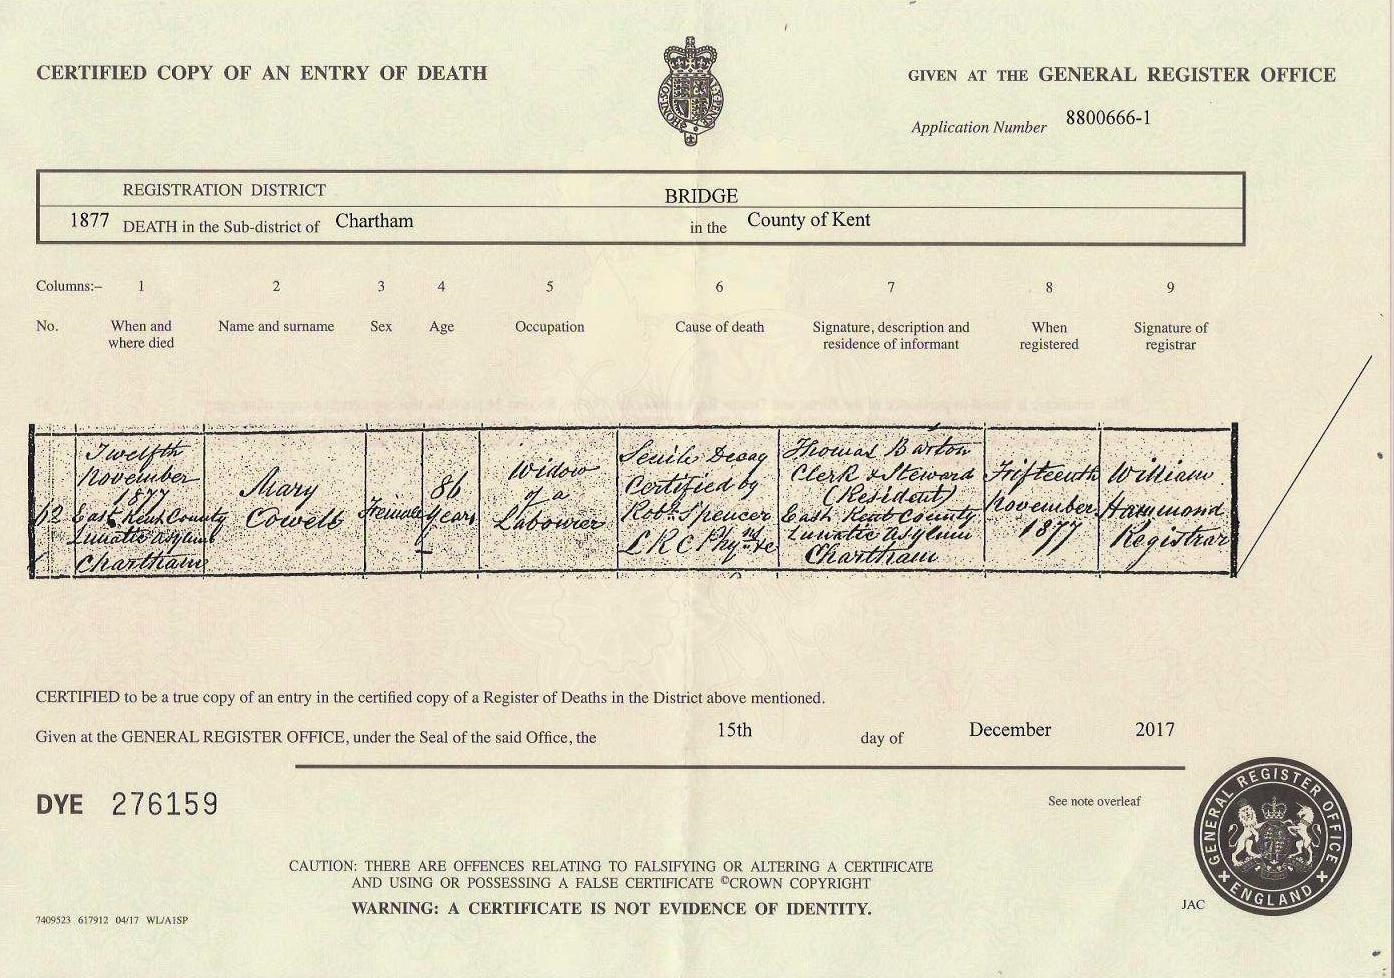 CERTIFIED COPY OF AN ENTRY OF DEATH
GIVEN AT THE GENERAL REGISTER OFFICE
Application Number 8800666-1
REGISTRATION DISTRICT BRIDGE
1877 DEATH in the Sub-district of Chartham in the County of Kent
Columns:- 1 2 3 4 5 6 7 8 9
No.
When and
where died
Name and surname
Sex
Age
Occupation
Cause of death
Signature, description and
residence of informant
When
registered
Signature of
registrar
Twelfth
November
1877
East Kent County
Lunatic Asylum
Chartham
Mary
Cowell
Female
86
years
Widow
of a
Labourer
Senile Decay
Certified by
Robt. Spencer
LRC Phyns &c
Thomas Barton
Clerk & Steward
(Resident)
East Kent County
Lunatic Asylum
Chartham
Fifteenth
November
1877
William
Hammond
Registrar
CERTIFIED to be a true copy of an entry in the certified copy of a Register of Deaths in the District above mentioned.
Given at the GENERAL REGISTER OFFICE, under the Seal of the said Office, the 15th day of December 2017
DYE 276159
See note overleaf
GENERAL REGISTER OFFICE
ENGLAND
CAUTION: THERE ARE OFFENCES RELATING TO FALSIFYING OR ALTERING A CERTIFICATE
AND USING OR POSSESSING A FALSE CERTIFICATE ©CROWN COPYRIGHT
WARNING: A CERTIFICATE IS NOT EVIDENCE OF IDENTITY.
JAC
7409523 617912 04/17 WL/A1SP